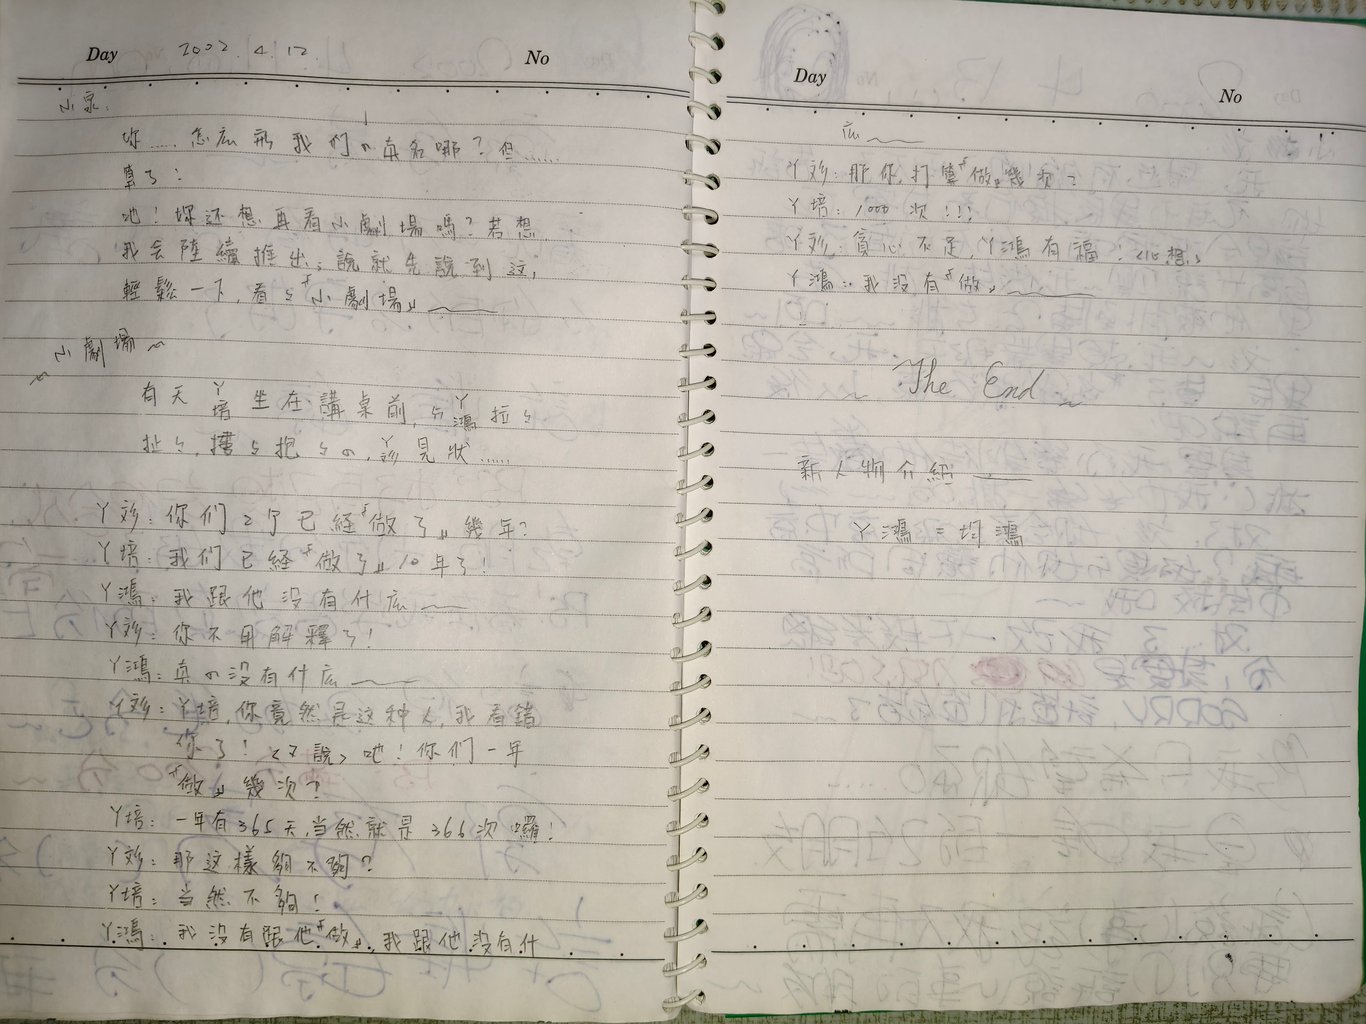 Day 2002.4.12 No
小泉:
妳……怎広用我们の真名哪?但……
算了!
吔!妳还想再看小劇場嗎?若想
我会陸續推出;說就先說到这,
輕鬆一下,看ㄅ『小劇場』
小劇場~
有天ㄚ培坐在講桌前,ㄅㄚ鴻拉ㄅ
扯ㄅ,摟ㄅ抱ㄅの,ㄚ診見狀……
ㄚ診:你们2个已経『做了』幾年?
ㄚ培:我们已経『做了』10年了!
ㄚ鴻:我跟他没有什広
ㄚ診:你不用解釋了!
ㄚ鴻:真の没有什広
ㄚ診:ㄚ培,你竟然是这种人,我看錯
你了!<又說>吔!你们一年
『做』幾次?
ㄚ培:一年有365天,当然就是366次囉!
ㄚ診:那这樣夠不夠?
ㄚ培:当然不夠!
ㄚ鴻:我没有跟他『做』,我跟他没有什
Day No
広
ㄚ診:那你打算『做』幾次?
ㄚ培:1000次!!!
ㄚ診:貪心不足,ㄚ鴻有福!<心想>
ㄚ鴻:我没有『做』
The End~
新人物介紹
ㄚ鴻=均鴻